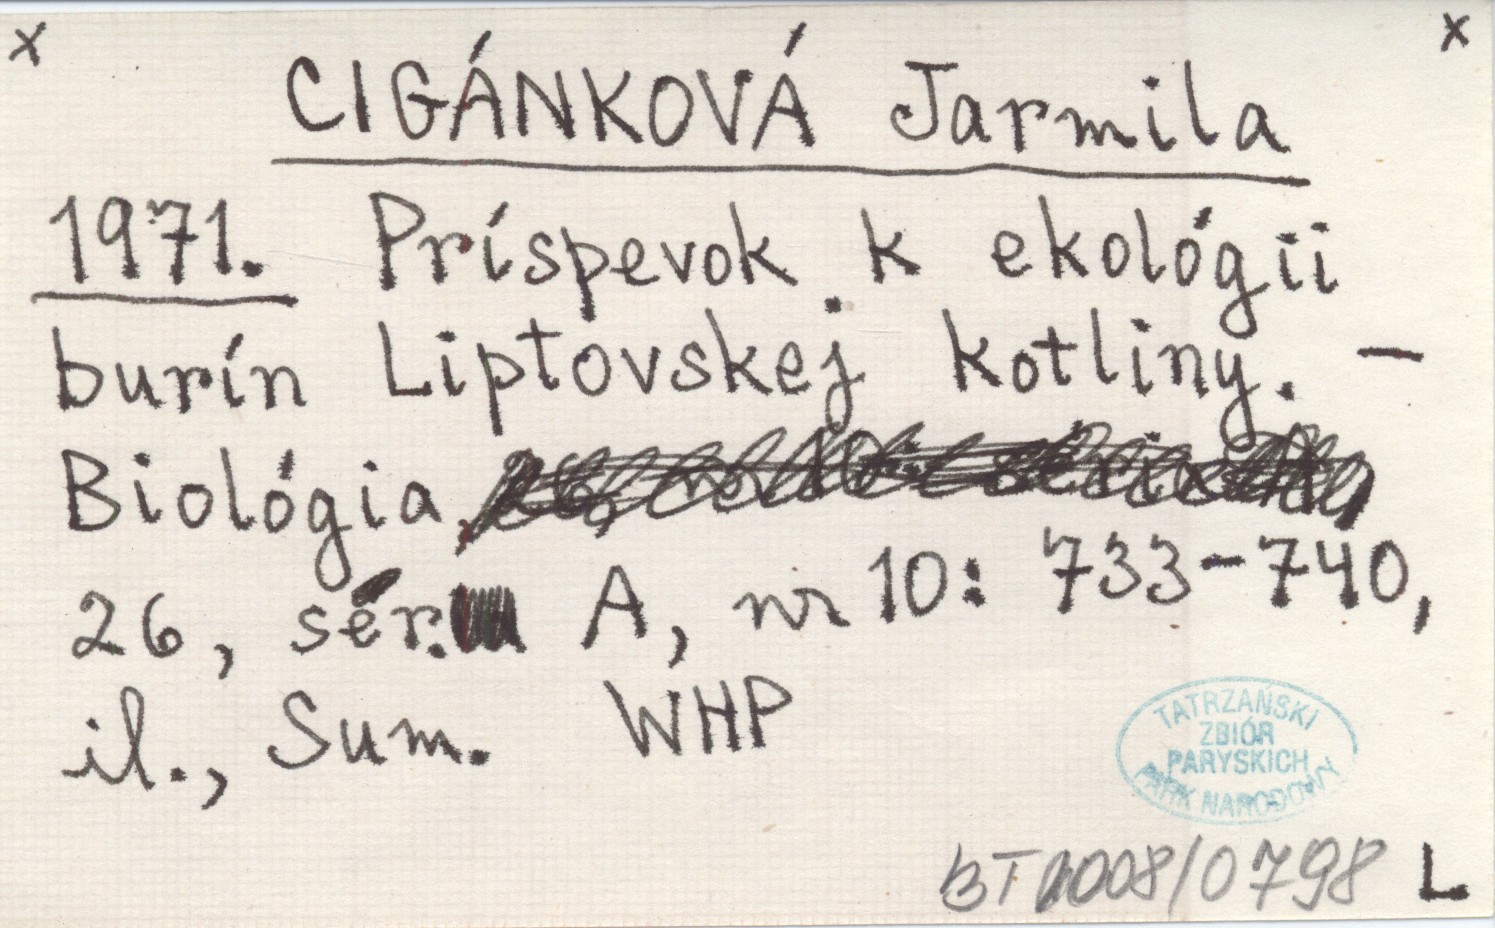 x x
CIGÁNKOVÁ Jarmila
1971. Príspevok k ekológii
burín Liptovskej kotliny. –
Biológia,
26, sér. A, nr 10: 733-740,
il., Sum. WHP
TATRZAŃSKI
ZBIÓR
PARYSKICH
PARK NARODOWY
BT 2008/0798 L